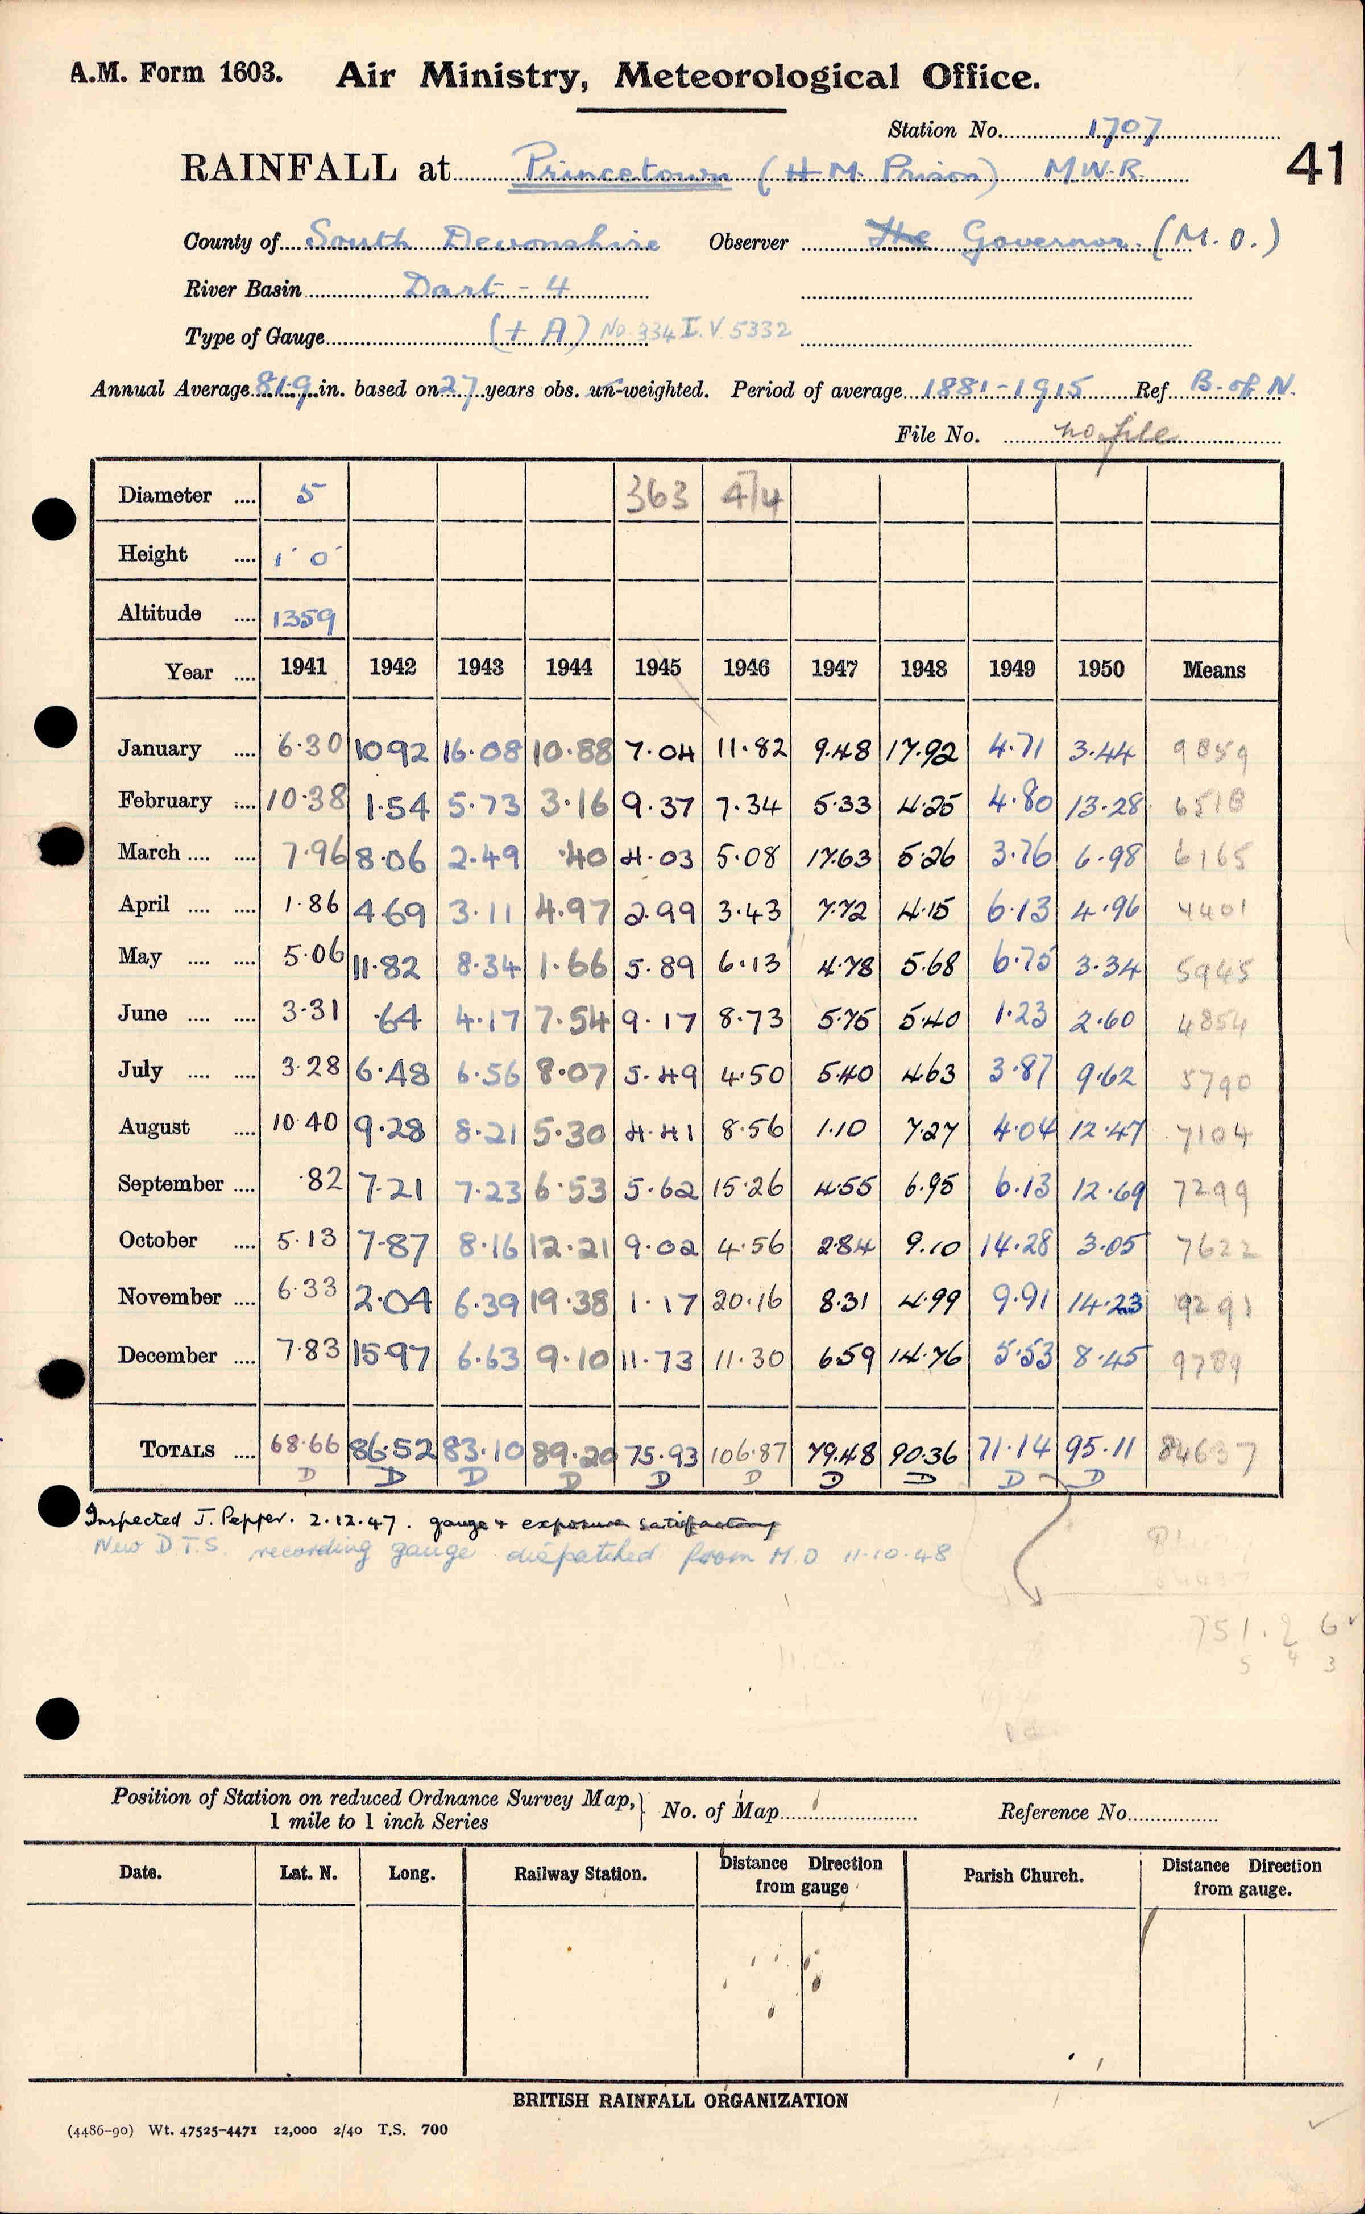 A.M. Form 1603. Air Ministry, Meteorological Office.
Station No. 1707
41
RAINFALL at Princetown (H.M. Prison) M.W.R.
County of South Devonshire Observer The Governor (M.O.)
River Basin Dart - 4
Type of Gauge (+ A) No. 334 I.V. 5332
Annual Average 81.9 in. based on 27 years obs. un-weighted. Period of average 1881-1915 Ref B. of N.
File No. no file
Diameter .... 5 363 474
Height .... 1' 0"
Altitude .... 1359
Year .... 1941 1942 1943 1944 1945 1946 1947 1948 1949 1950 Means
January .... 6.30 10.92 16.08 10.88 7.04 11.82 9.48 17.92 4.71 3.44 9859
February .... 10.38 1.54 5.73 3.16 9.37 7.34 5.33 4.25 4.80 13.28 6518
March .... .... 7.96 8.06 2.49 .40 4.03 5.08 17.63 5.26 3.76 6.98 6165
April .... .... 1.86 4.69 3.11 4.97 2.99 3.43 7.72 4.15 6.13 4.96 4401
May .... .... 5.06 11.82 8.34 1.66 5.89 6.13 4.78 5.68 6.75 3.34 5945
June .... .... 3.31 .64 4.17 7.54 9.17 8.73 5.75 5.40 1.23 2.60 4854
July .... .... 3.28 6.48 6.56 8.07 5.49 4.50 5.40 4.63 3.87 9.62 5790
August .... 10.40 9.28 8.21 5.30 4.41 8.56 1.10 7.27 4.04 12.47 7104
September .... .82 7.21 7.23 6.53 5.62 15.26 4.55 6.95 6.13 12.69 7299
October .... 5.13 7.87 8.16 12.21 9.02 4.56 2.84 9.10 14.28 3.05 7622
November .... 6.33 2.04 6.39 19.38 1.17 20.16 8.31 4.99 9.91 14.23 9291
December .... 7.83 15.97 6.63 9.10 11.73 11.30 6.59 14.76 5.53 8.45 9789
TOTALS .... 68.66 86.52 83.10 89.20 75.93 106.87 79.48 90.36 71.14 95.11 84637
D D D D D D D D D D
Inspected J. Pepper. 2.12.47. gauge + exposure satisfactory
New D.T.S. recording gauge dispatched from M.O 11-10-48
751.2 6
5 4 3
Position of Station on reduced Ordnance Survey Map,} No. of Map Reference No.
1 mile to 1 inch Series
Date. Lat. N. Long. Railway Station. Distance Direction from gauge Parish Church. Distance Direction from gauge.
BRITISH RAINFALL ORGANIZATION
(4486-90) Wt. 47525-4471 12,000 2/40 T.S. 700